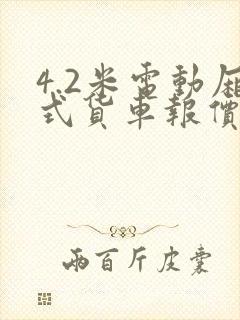 4.2米電動厢
式貨車報價
兩百斤皮囊